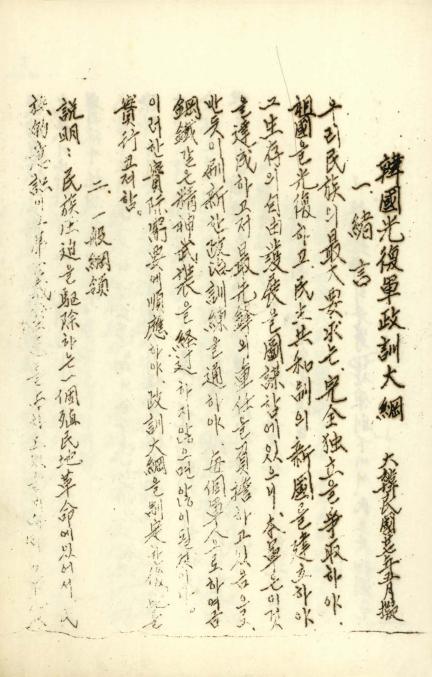 韓國光復軍政訓大綱
大韓民國 年五月擬
一 緒言
우리民族의最大要求는、完全独立을爭取하야、
祖國을光復하고、民主共和制의新國을建立하야、
그生存의自由發展을圖謀함에있으니、本軍은이것
을達成하고저最先鋒의重任을負擔하고있음으로、
반듯이嶄新한政治訓練을通하야、每個軍人으로하여금
鋼鐵같은精神武裝을経過하지않으면않이될것이다。
이러한實際需要에順應하야、政訓大綱을
實行코저함。
二、一般綱領
說明：民族压迫을駆除하는一個殖民地革命에있어서、民
族的意識